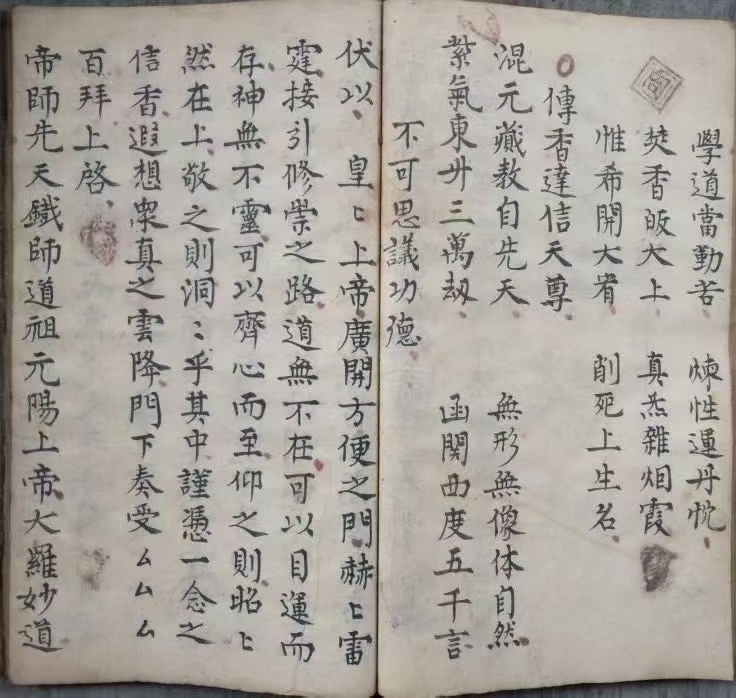 學道當勤苦、 煉性運丹忱、
焚香皈大上、 真炁雜烟霞
惟希開大宥、 削死上生名、
傳香達信天尊、
混元藏教自先天、 無形無像体自然
紫氣東升三萬劫、 函関西度五千言
不可思議功德、
伏以、 皇〻上帝、廣開方便之門、赫〻雷
霆、接引修崇之路、道無不在、可以目運而
存、神無不靈、可以齊心而至、仰之則昭〻
然在上、敬之則洞〻乎其中、謹憑一念之
信香、遐想衆真之雲降、門下奏受ㄙㄙㄙ
百拜上啓、
帝師先天鐵師道祖元陽上帝、大羅妙道